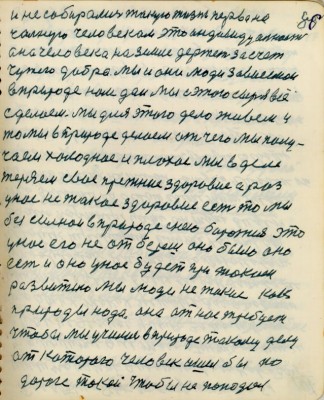 86
и не собирались такую жизнь первона
чальную человеком это индивидуальность
она человека на земле держет за счет
чужого добра. мы и они люди завоеваем
в природе нам дай мы с этого сырья всё
сделаем. мы для этого дело живем и
то мы в природе делаем от чего мы полу-
чаем холодное и плохое мы в деле
теряем свое прежние здоровие а раз
у нас не такое здоровие есть то мы
бессильны в природе с нею бороться это
у нас его не отберешь оно было оно
есть и оно у нас будет при таком
развитию мы люди не такие как
природы нада, она от нас требует
чтобы мы учились в природе такому делу
от которого человек ишел бы по
дороге такой чтобы не попадал